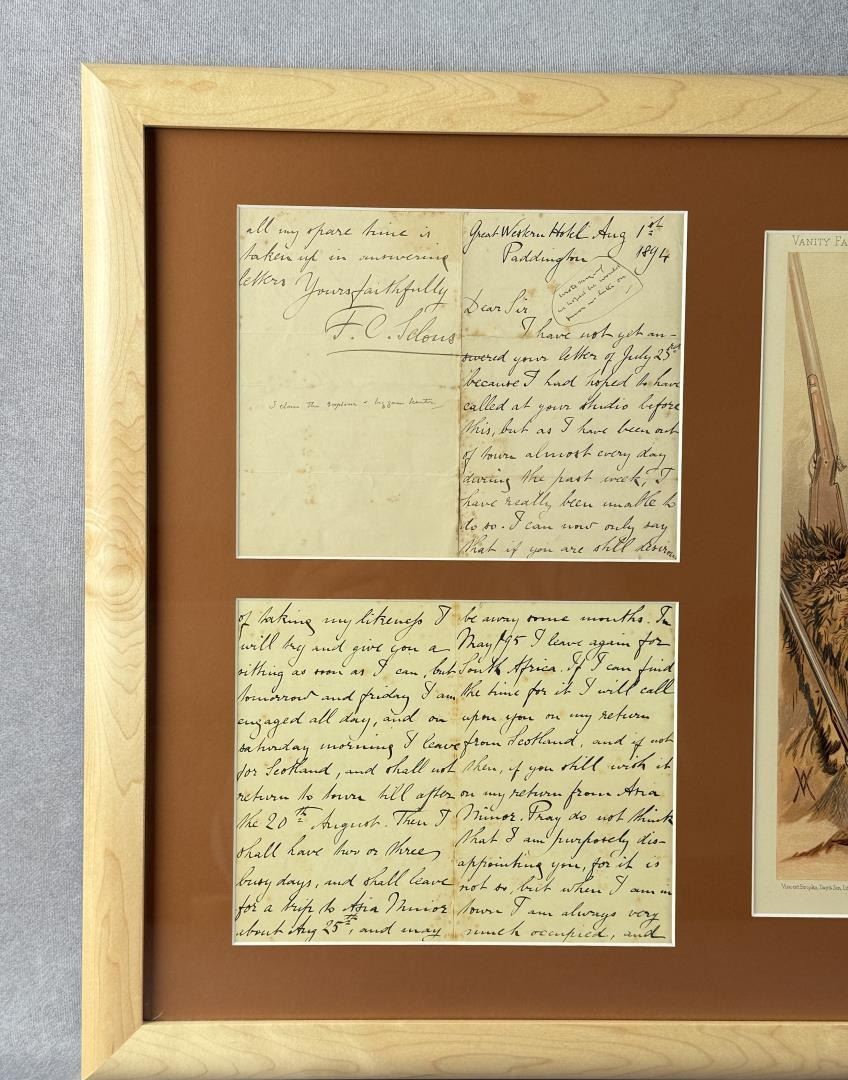 Great Western Hotel Aug 1st
Paddington 1894
Dear Sir
I have not yet an-
swered your letter of July 23rd
because I had hoped to have
called at your studio before
this, but as I have been out
of town almost every day
during the past week, I
have really been unable to
do so. I can now only say
that if you are still desirous
of taking my likeness I
will try and give you a
sitting as soon as I can, but
tomorrow and friday I am
engaged all day, and on
saturday morning I leave
for Scotland, and shall not
return to town till after
the 20th August. Then I
shall have two or three
busy days, and shall leave
for a trip to Asia Minor
about Aug 25th, and may
be away some months. In
May /95 I leave again for
South Africa. If I can find
the time for it I will call
upon you on my return
from Scotland, and if not
then, if you still wish it
on my return from Asia
Minor. Pray do not think
that I am purposely dis-
appointing you, for it is
not so, but when I am in
town I am always very
much occupied, and
all my spare time is
taken up in answering
letters Yours faithfully
F. C. Selous
VANITY FA
Vincent Brooks, Day & Son, Li